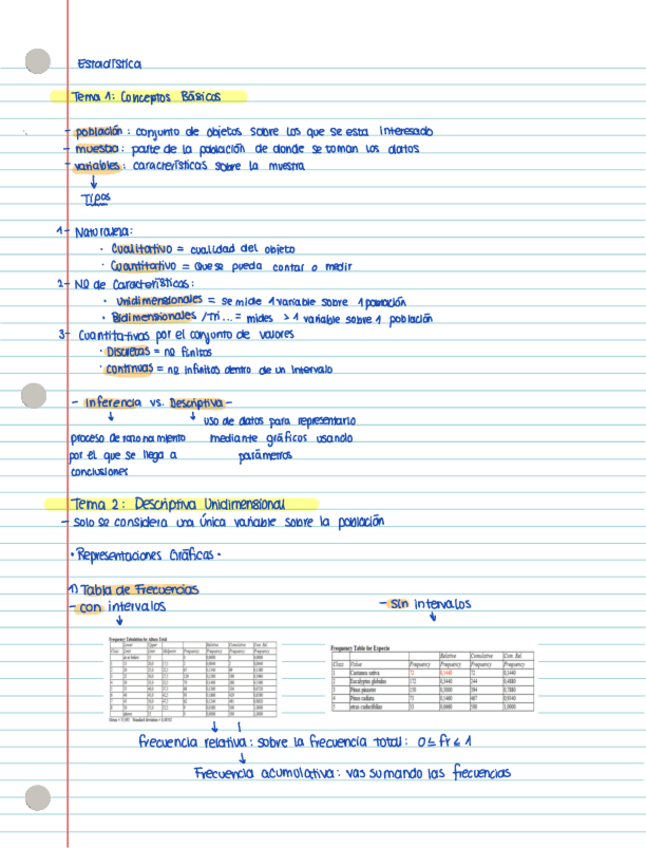 Estadística
Tema 1: Conceptos Básicos
- población: conjunto de objetos sobre los que se esta interesado
- muestra: parte de la población de donde se toman los datos
- variables: características sobre la muestra
Tipos
1- Naturaleza:
· Cualitativo = cualidad del objeto
· Cuantitativo = Que se pueda contar o medir
2- Nº de Características:
· Unidimensionales = se mide 1 variable sobre 1 población
· Bidimensionales /Tri... = mides > 1 variable sobre 1 población
3- Cuantitativas por el conjunto de valores
· Discretas = nº finitos
· continuas = nº infinitos dentro de un intervalo
- Inferencia vs. Descriptiva -
uso de datos para representarlo
proceso de razonamiento mediante gráficos usando
por el que se llega a parámetros
conclusiones
Tema 2: Descriptiva Unidimensional
- solo se considera una única variable sobre la población
· Representaciones Gráficas ·
1) Tabla de Frecuencias
- con intervalos
- sin intervalos
Frequency Table for Especie
Relative Cumulative Cum. Rel.
Class Value Frequency Frequency Frequency Frequency
1 Castanea sativa 72 0,1440 72 0,1440
2 Eucalyptus globulus 172 0,3440 244 0,4880
3 Pinus pinaster 150 0,3000 394 0,7880
4 Pinus radiata 73 0,1460 467 0,9340
5 otras caducifolias 33 0,0660 500 1,0000
frecuencia relativa: sobre la frecuencia total: 0 ≤ fr ≤ 1
Frecuencia acumulativa: vas sumando las frecuencias